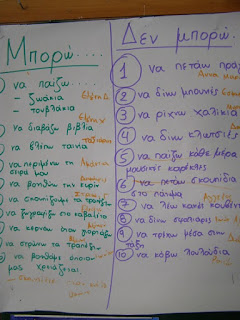 Μπορώ....
να παίζω:
- ζωάκια
- τουβλάκια
να διαβάζω βιβλία
να βλέπω ταινία
να περιμένω τη
σειρά μου
να βοηθάω την κυρία
να σκουπίζουμε τα τραπέζια
να ζωγραφίζω στο καβαλέτο
να κερνάω όταν γιορτάζω
να στρώνω τα τραπέζια
να βοηθάω όποιον
μας χρειάζεται
Δεν μπορώ...
1 να πετάω
2 να δίνω μπουνιές
3 να ρίχνω χαλίκια
4 να δίνω κλωτσιές
5 να παίζω κάθε μέρα
μουσικές καρέκλες
6 να πετάω σκουπίδια
στο πάτωμα
7 να λέω κακές κουβέντες
8 να δίνω σφαλιάρες
9 να τρέχω μέσα στην
τάξη
10 να κόβω λουλούδια